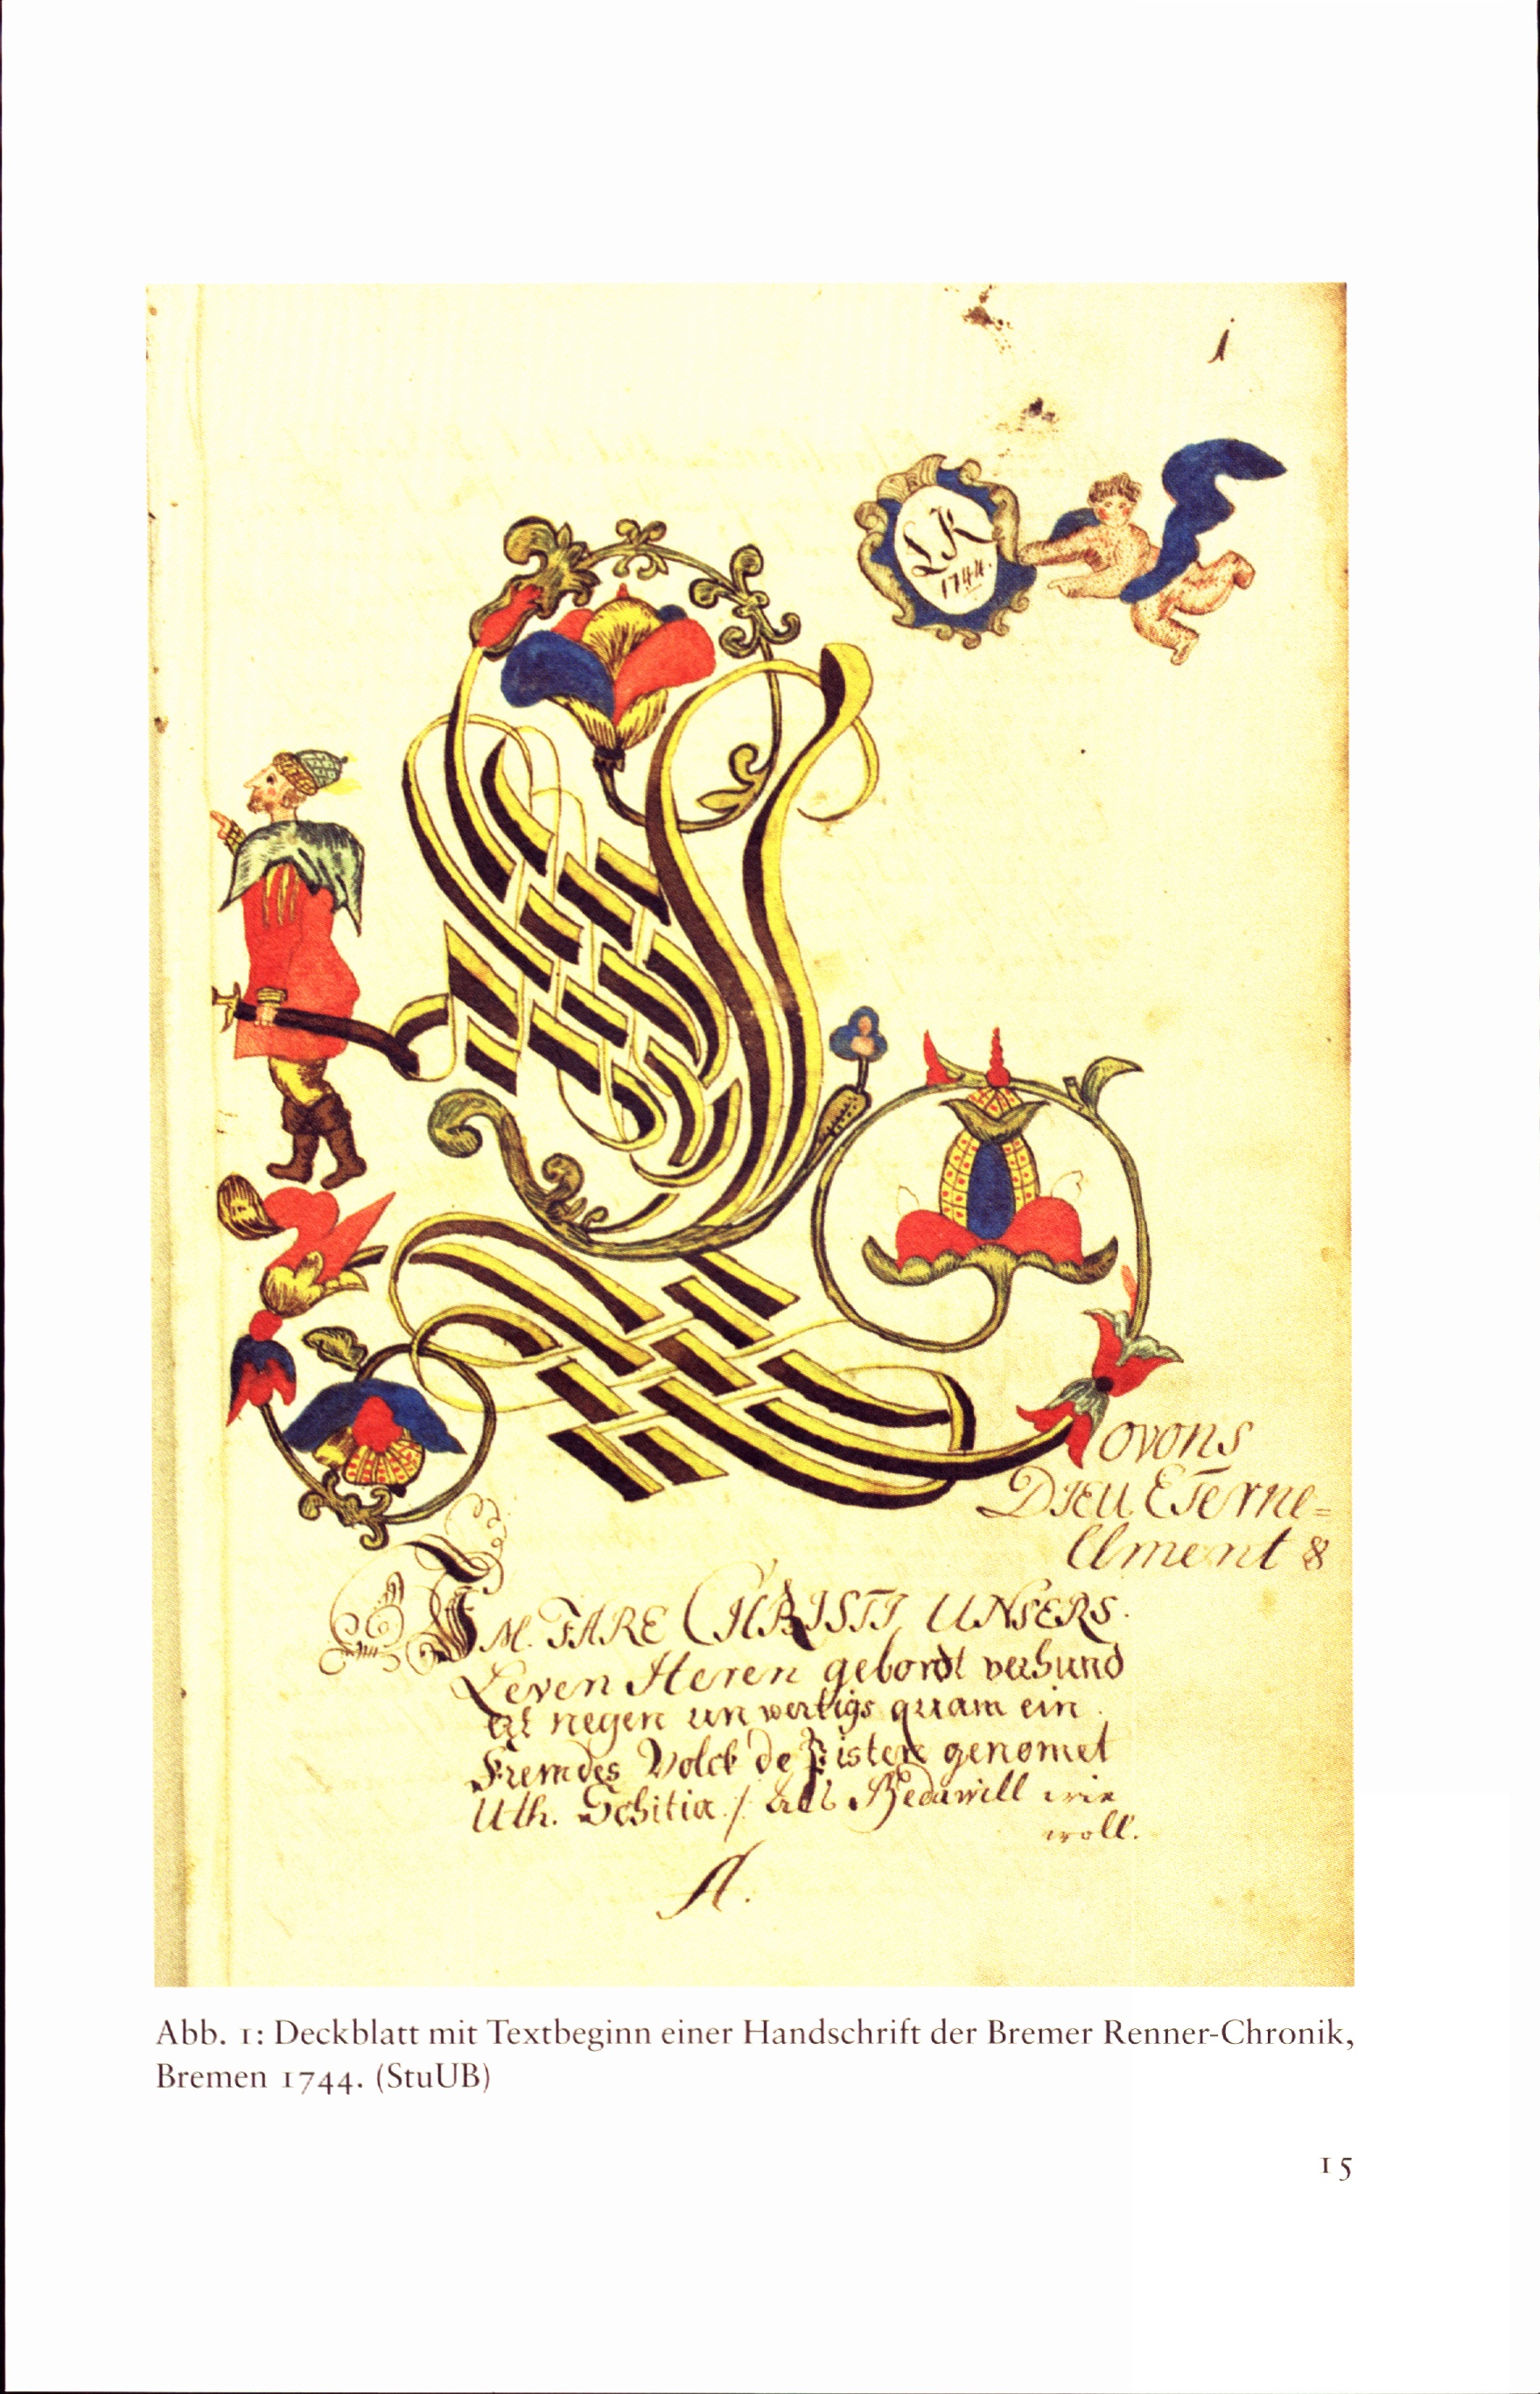 i
LK
1744.
L
ovons
DIEU ETerne=
llment &
IM. IARE CHRISTI UNSERS.
Leven Heren gebordt verhund
ert negen un wertigs quam ein
Fremdes Volck de genomet
Uth. Schitia /
woll.
A.
Abb. 1: Deckblatt mit Textbeginn einer Handschrift der Bremer Renner-Chronik,
Bremen 1744. (StuUB)
15